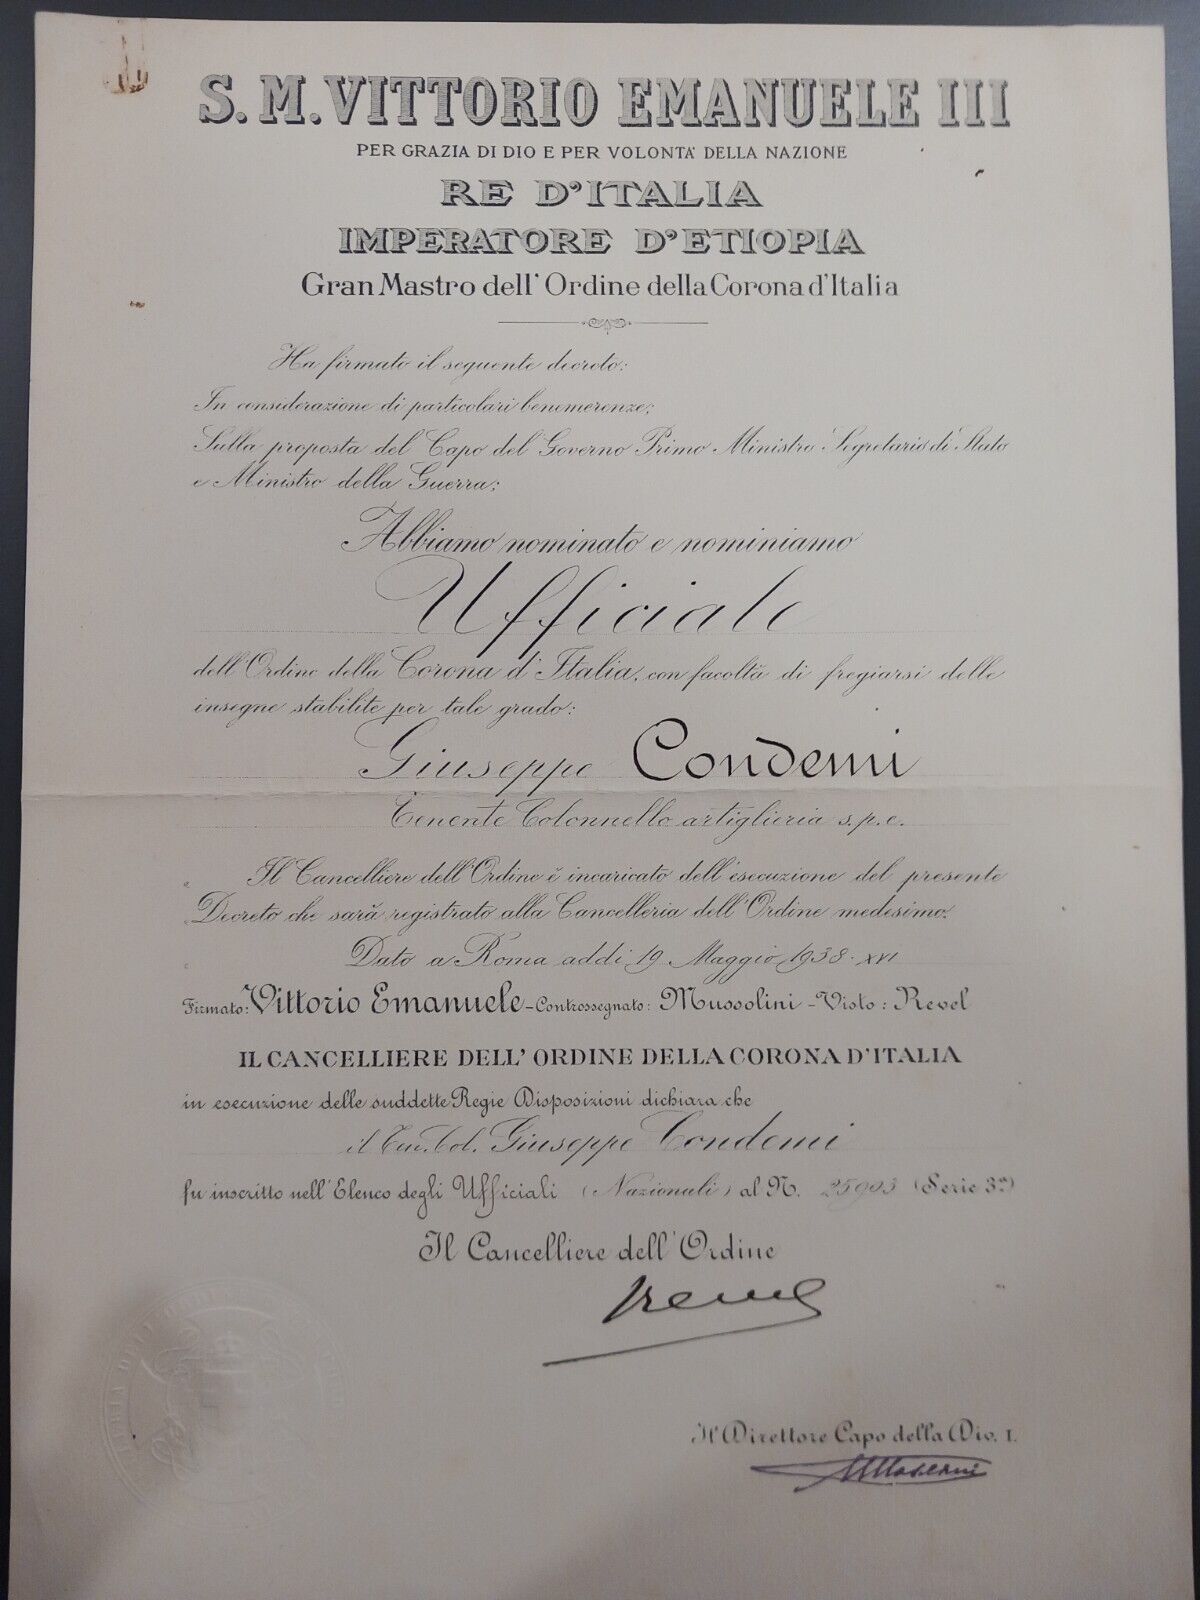 S. M. VITTORIO EMANUELE III
PER GRAZIA DI DIO E PER VOLONTA' DELLA NAZIONE
RE D'ITALIA
IMPERATORE D'ETIOPIA
Gran Mastro dell'Ordine della Corona d'Italia
Ha firmato il seguente decreto:
In considerazione di particolari benemerenze;
Sulla proposta del Capo del Governo Primo Ministro Segretario di Stato
e Ministro della Guerra;
Abbiamo nominato e nominiamo
Ufficiale
dell'Ordine della Corona d'Italia, con facoltà di fregiarsi delle
insegne stabilite per tale grado:
Giuseppe Condemi
Tenente Colonnello artiglieria s.p.e.
Il Cancelliere dell'Ordine è incaricato dell'esecuzione del presente
Decreto che sarà registrato alla Cancelleria dell'Ordine medesimo.
Dato a Roma addì 19 Maggio 1938-XVI
Firmato: Vittorio Emanuele - Controssegnato: Mussolini - Visto: Revel
IL CANCELLIERE DELL'ORDINE DELLA CORONA D'ITALIA
in esecuzione delle suddette Regie Disposizioni dichiara che
il Ten. Col. Giuseppe Condemi
fu inscritto nell'Elenco degli Ufficiali (Nazionali) al N. 25903 (Serie 3ª)
Il Cancelliere dell'Ordine
Il Direttore Capo della Div. I.